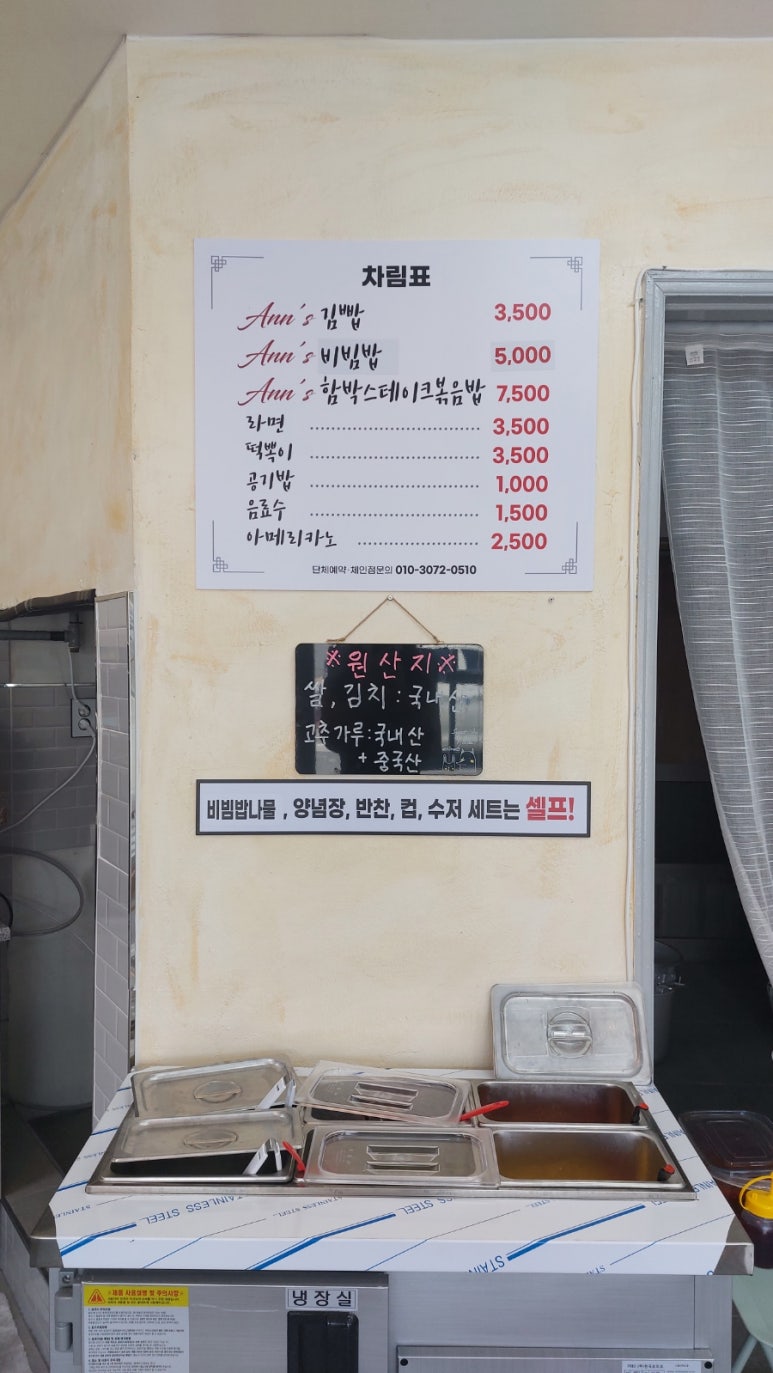 차림표
Ann's 김빱 3,500
Ann's 비빔밥 5,000
Ann's 함박스테이크볶음밥 7,500
라면 3,500
떡뽁이 3,500
공기밥 1,000
음료수 1,500
아메리카노 2,500
단체예약·체인점문의 010-3072-0510
※원산지※
쌀, 김치 : 국내산
고추가루:국내산
+ 중국산
비빔밥나물 , 양념장, 반찬, 컵, 수저 세트는 셀프!
STAINLESS STEEL
STAINLESS STEEL
STAINLESS STEEL
제품 사용설명 및 주의사항
냉장실